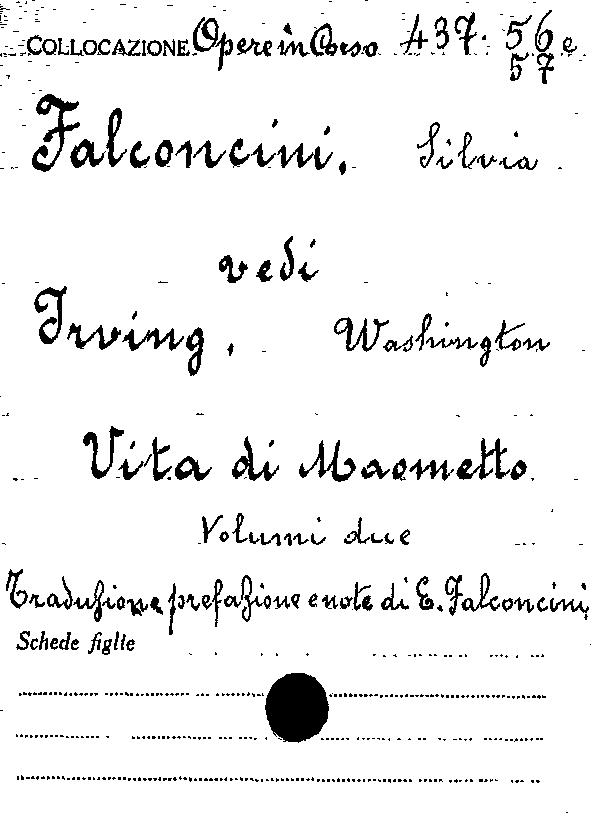 COLLOCAZIONE Opere in Corso 437. 56 e
57
Falconcini, Silvia
vedi
Irving, Washington
Vita di Maometto
Volumi due
Traduzione prefazione e note di E. Falconcini,
Schede figlie